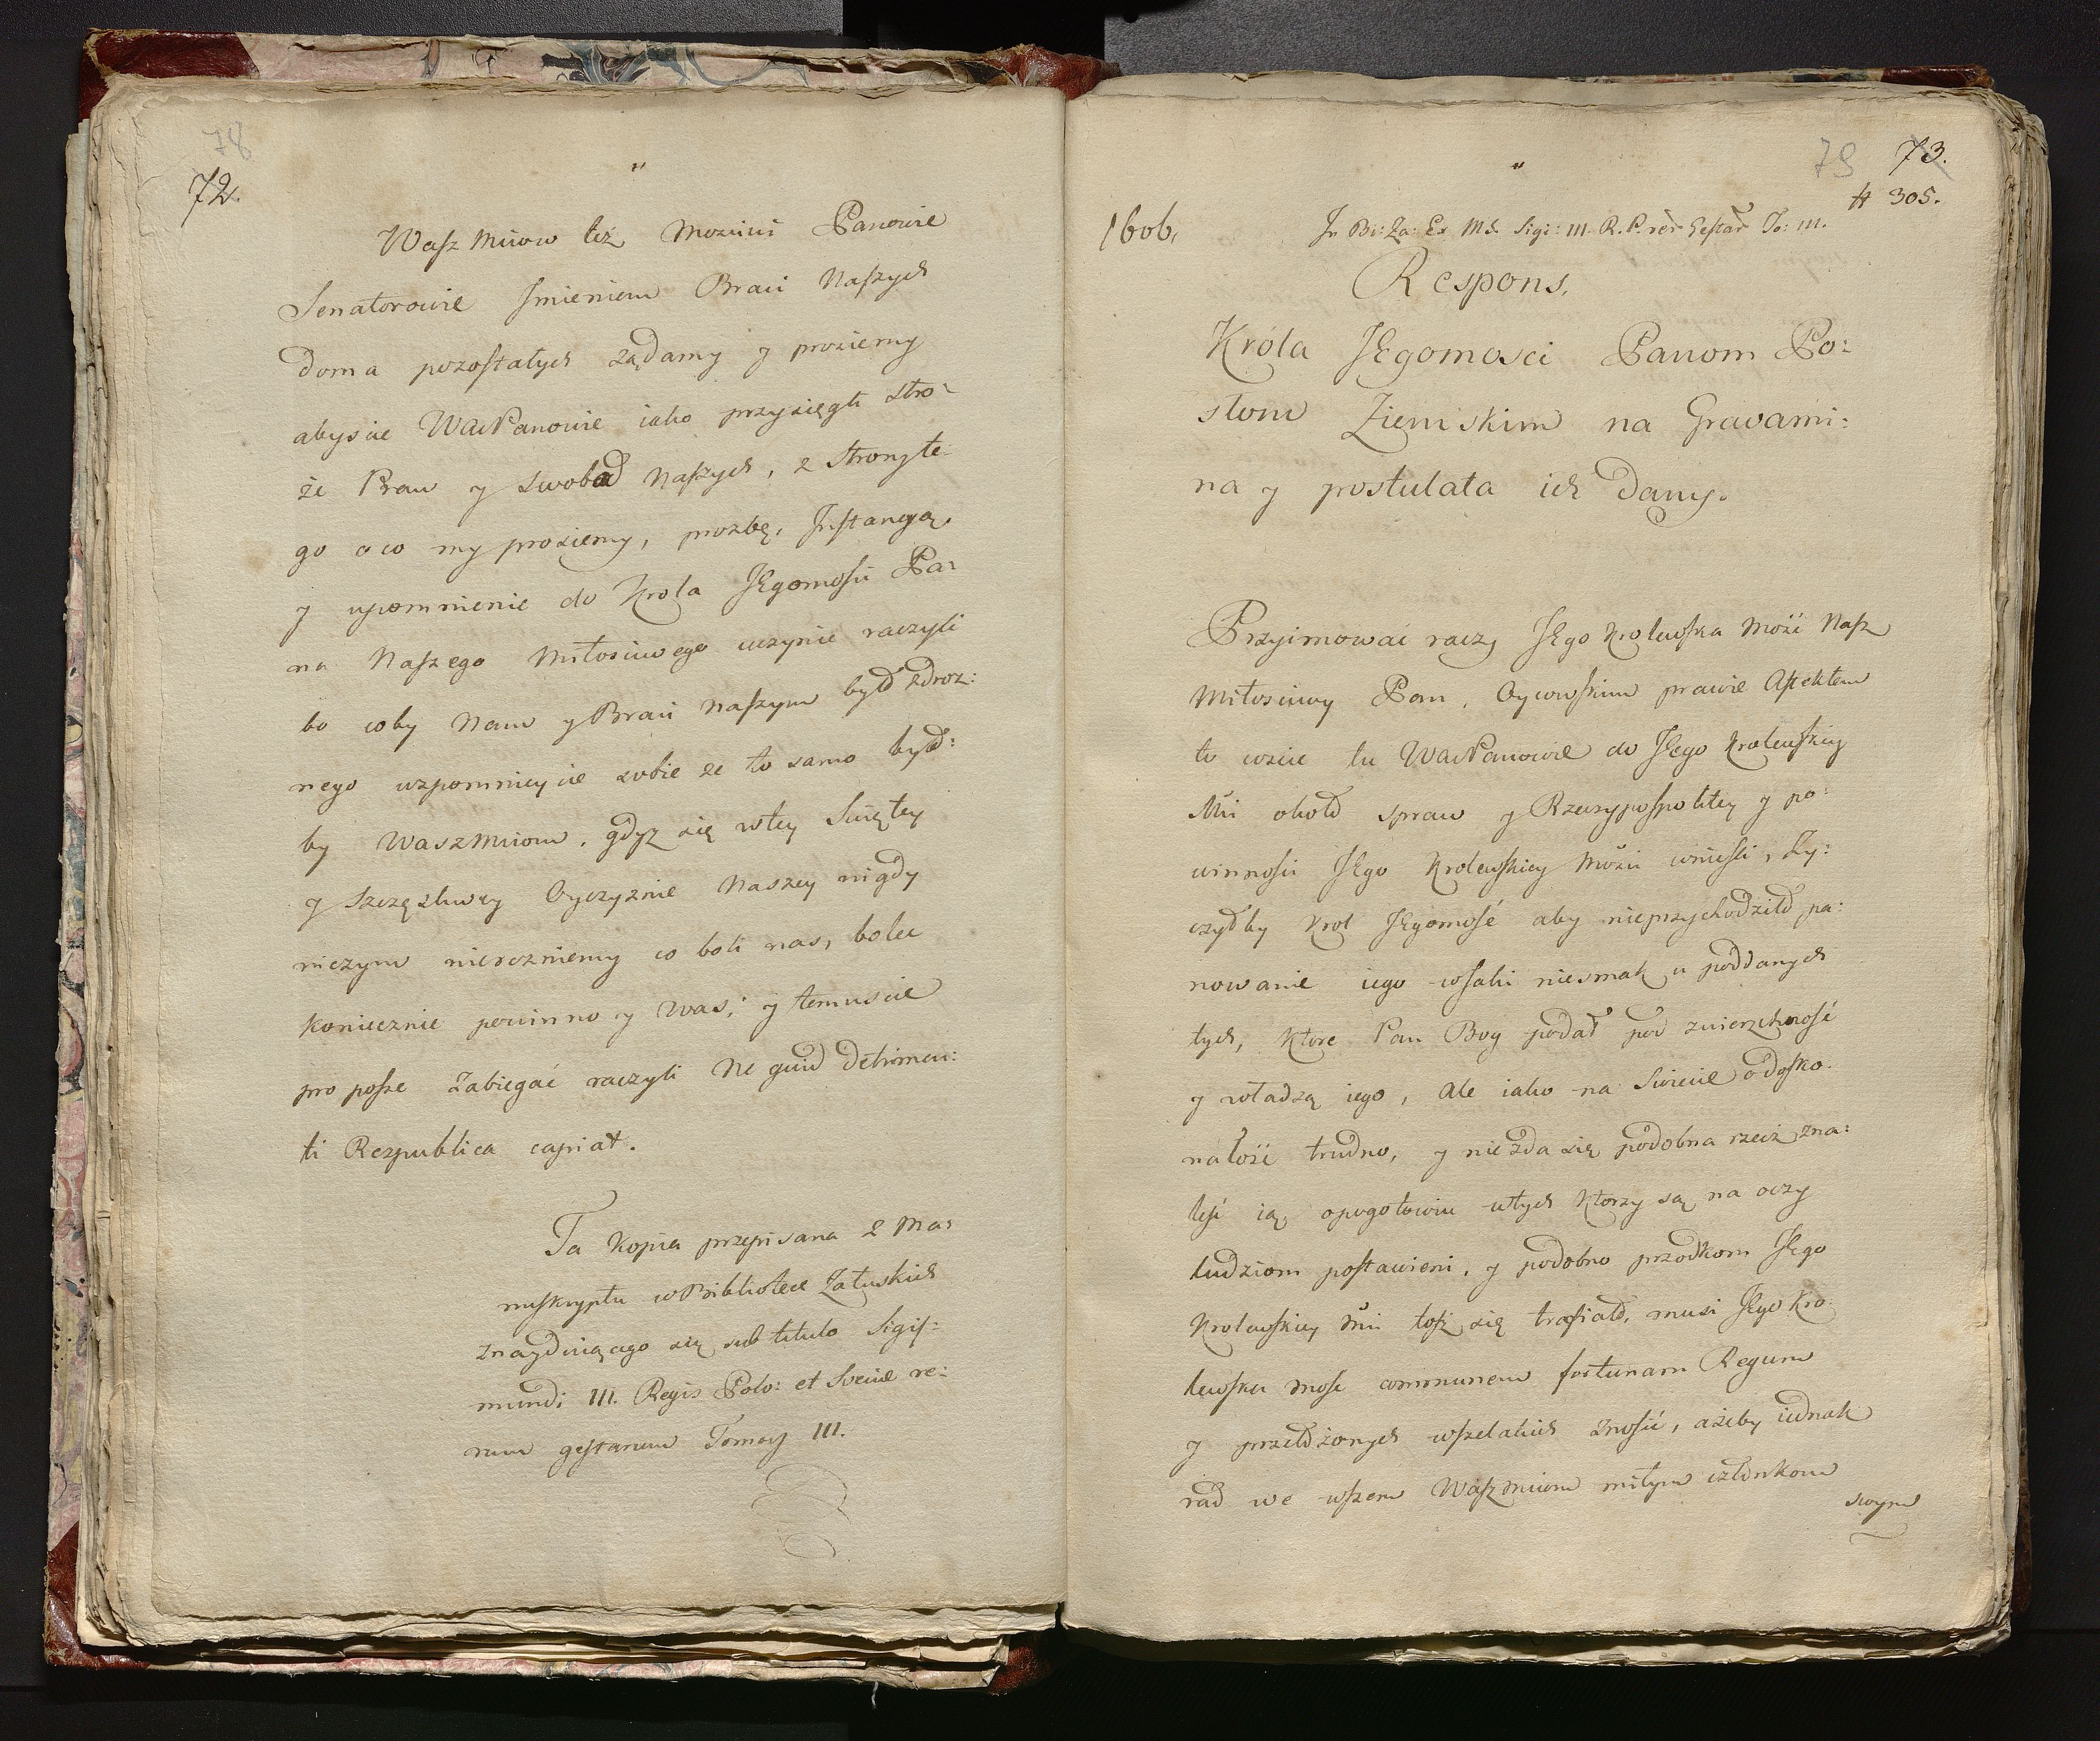 78
72.
Wasz Mciow też Mozni Panowie
Senatorowie Imieniem Braci Naszych
doma pozostałych żądamy y prosiemy
abyscie WaćPanowie iako przysięgli stro:
że Praw y swobod Naszych, z strony te
go o co my prosiemy, prozbę, Instancyą
y upomnienie do Krola JEgomosci Pa:
na Naszego Miłosciwego uczynic raczyli
bo coby Nam y Braci Naszym było zdroz:
nego wspomnicy ie sobie ze to samo było:
by Wasz Mciom, gdyz się w tey Swiętey
y szczęsliwey Oyczyznie Naszey nigdy
niczym nierozniemy co boli nas, bolec
koniecznie powinno y was; y temuscie
pro posse zabiegać raczyli Ne quid detrimen:
ti Respublica capiat.
Ta Kopia przepisana z Ma:
nuskryptu w Bibliotece Załuskich
znayduiącego się sub titulo Sigis:
mundi III. Regis Polo: et Sveciae re:
rum gestarum Tomoy III.
79 73.
# 305.
1606, In Bi: Za: Ex MS. Sigi: III. R. P. rer Gestar To: III.
Respons,
Króla JEgomosci Panom Po:
słom Ziemskim na Gravami:
na y postulata ich dany.
Przyimować raczy JEgo Krolewska Mość Nasz
Miłosciwy Pan, Oycowskim prawie Afektem
to coscie tu WaćPanowie do JEgo Krolewskiey
Mci około spraw y Rzeczypospolitey y po:
winnosci JEgo Krolewskiey Mości wniesli, Zy:
czyłby Krol JEgomość aby nieprzychodziło pa:
nowanie iego wsaki niesmak u poddanych
tych, ktore Pan Bog podał pod zwierzchność
y władzą iego, Ale iako na Swiecie o dosko:
nałość trudno, y nie zda się podobna rzecz zna:
leść ią, opogotowiu u tych ktorzy są na oczy
ludziom postawieni, y podobno przodkom JEgo
Krolewskiey Mci tosz się trafiało, musi JEgo Kro:
lewska Mość communem fortunam Regum
y przełożonych wszelakich znosić, ażeby iednak
rad we wszem Wasz Mciom miłym członkom
swym